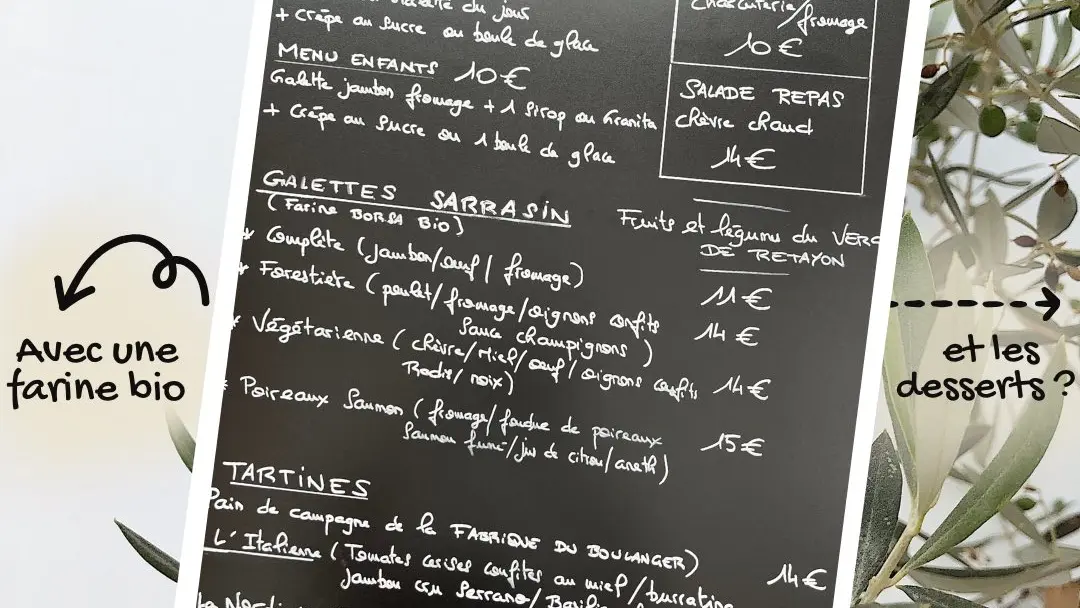 du jour
+ Crêpe au sucre ou boule de glace
MENU ENFANTS 10€
Galette jambon fromage + 1 sirop ou Granita
+ Crêpe au sucre ou 1 boule de glace
Charcuterie/fromage
10€
SALADE REPAS
Chèvre chaud
14€
GALETTES SARRASIN
(Farine BORSA Bio)
Fruits et légumes du VERG
DE RETAYON
* Complète (jambon/œuf/fromage) 11€
* Forestière (poulet/fromage/oignons confits 14€
Sauce champignons)
* Végétarienne (chèvre/Miel/œuf/oignons confits 14€
Radis/noix)
* Poireaux Saumon (fromage/fondue de poireaux 15€
Saumon fumé/jus de citron/aneth)
TARTINES
Pain de campagne de la FABRIQUE DU BOULANGER)
L'Italienne (Tomates cerises confites au miel/burratina 14€
Jambon cru Serrano/
Avec une
farine bio
et les
desserts ?